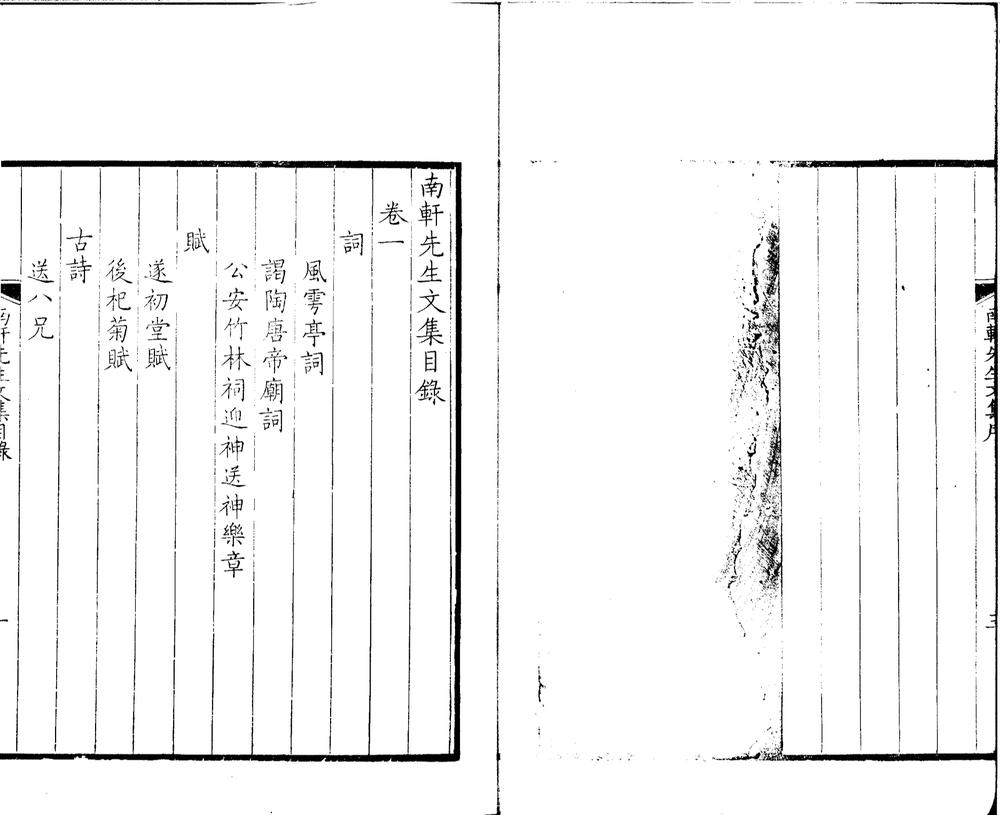 南軒先生文集序
三
南軒先生文集目錄
卷一
詞
風雩亭詞
謁陶唐帝廟詞
公安竹林祠迎神送神樂章
賦
遂初堂賦
後杞菊賦
古詩
送八兄
南軒先生文集目錄
一